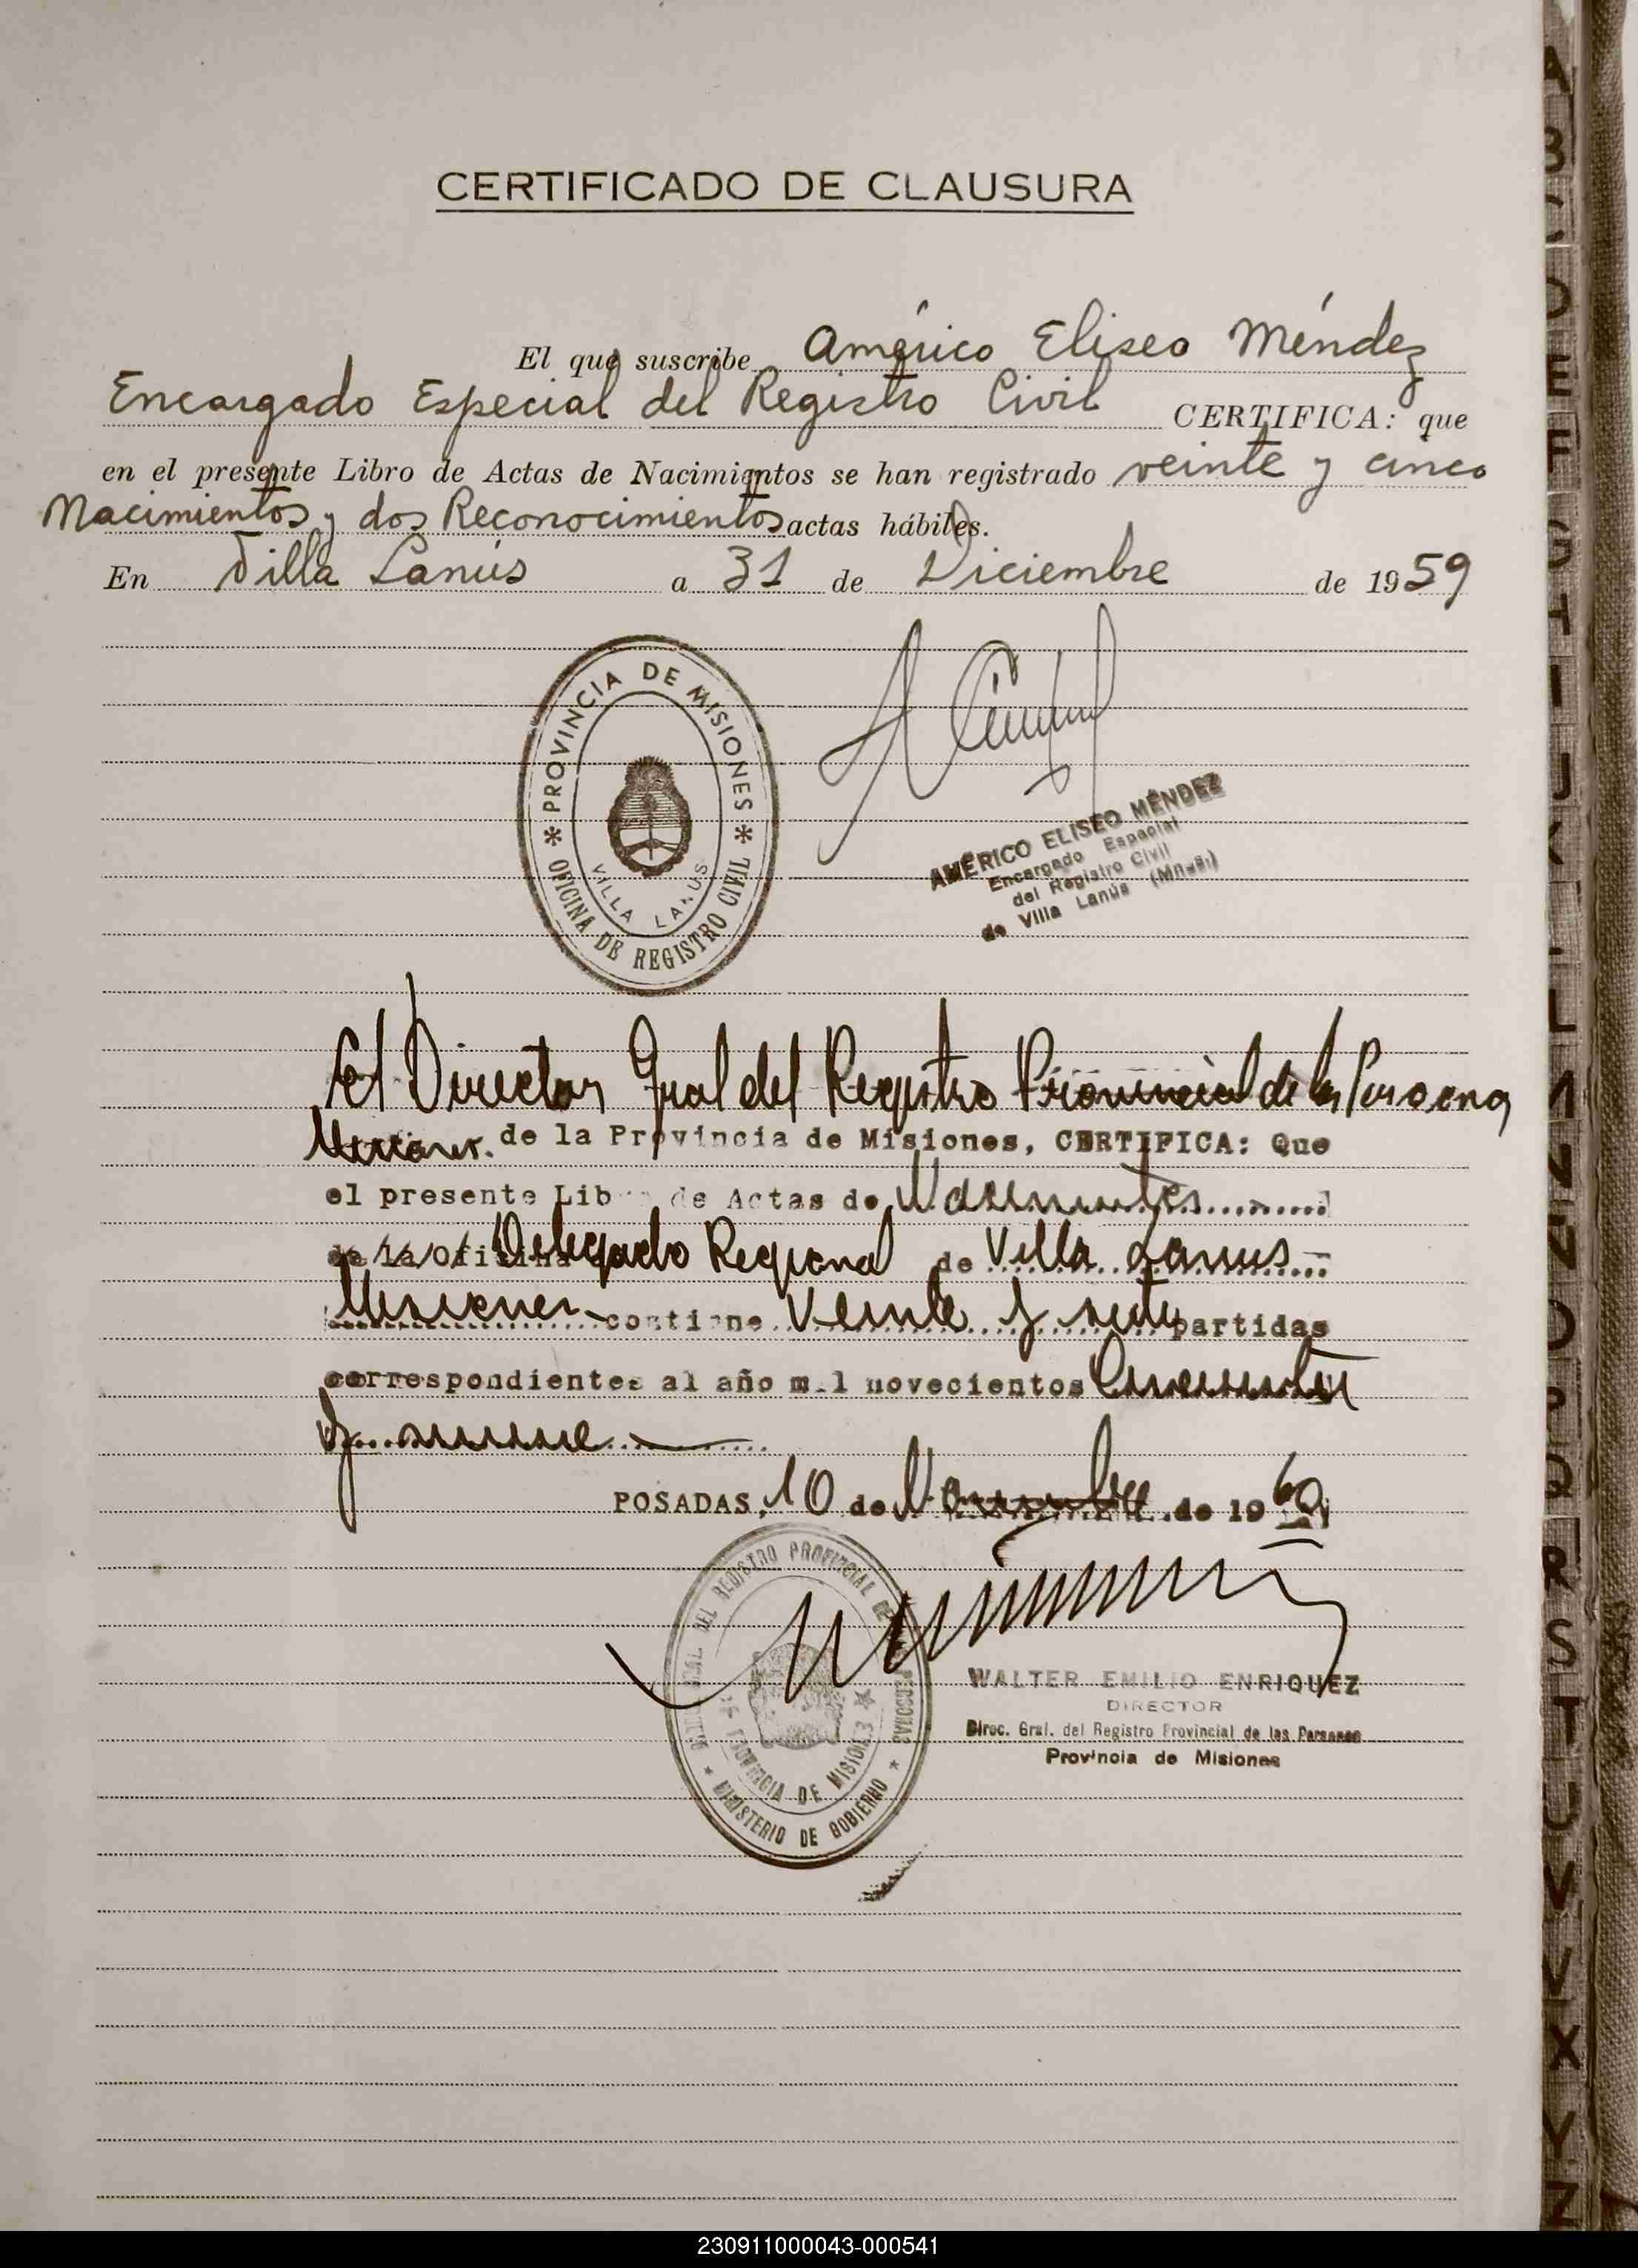 CERTIFICADO DE CLAUSURA
El que suscribe Américo Eliseo Méndez
Encargado Especial del Registro Civil CERTIFICA: que
en el presente Libro de Actas de Nacimientos se han registrado veinte y cinco
Nacimientos y dos Reconocimientos actas hábiles.
En Villa Lanús a 31 de Diciembre de 1959
PROVINCIA DE MISIONES
OFICINA DE REGISTRO CIVIL
VILLA LANUS
AMÉRICO ELISEO MÉNDEZ
Encargado Especial
del Registro Civil
de Villa Lanús
El Director Gral del Registro Provincial de las Personas
de la Provincia de Misiones, CERTIFICA: Que
el presente Libro de Actas de Nacimientos
Delegado Regional de Villa Lanus
Misiones contiene Veinte y siete partidas
correspondientes al año mil novecientos Cincuenta
y nueve
POSADAS, 10 de Noviembre de 1960
DEL REGISTRO PROVINCIAL DE PERSONAS
PROVINCIA DE MISIONES
MINISTERIO DE GOBIERNO
WALTER EMILIO ENRIQUEZ
DIRECTOR
Direc. Gral. del Registro Provincial de las Personas
Provincia de Misiones
A
B
C
D
E
F
G
H
I
J
K
L
L
M
N
N
O
P
Q
R
S
T
U
V
V
X
Y
Z
230911000043-000541